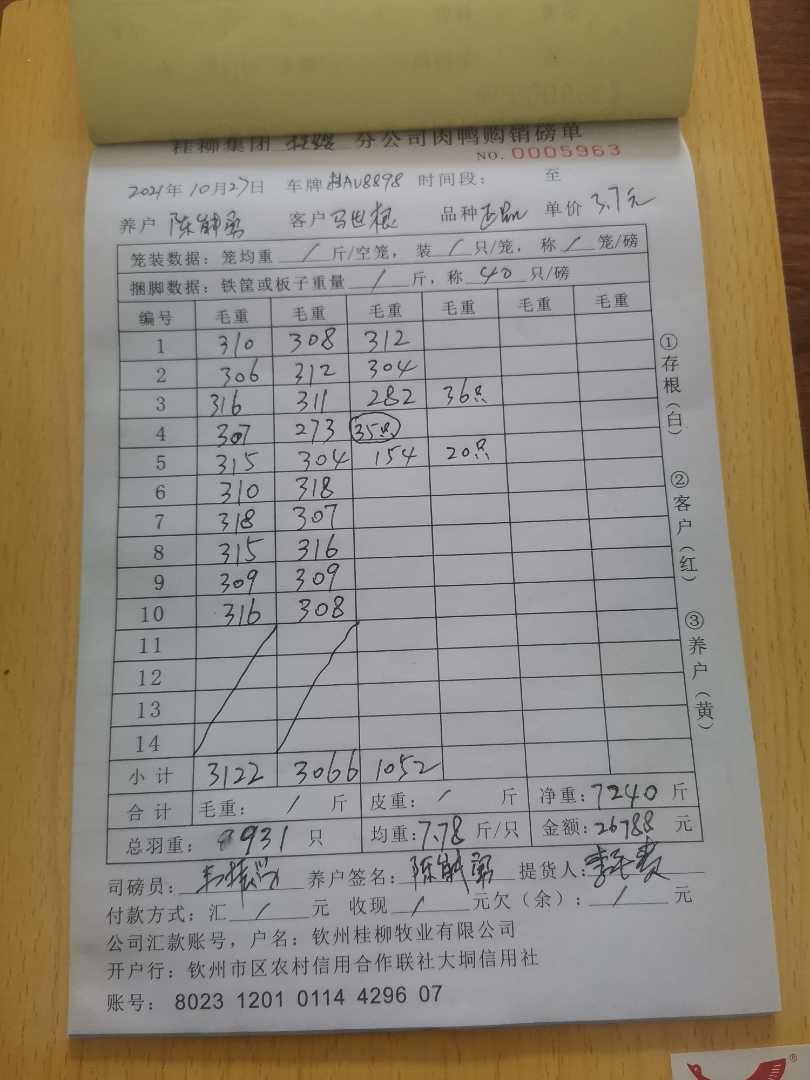 桂柳集团 分公司肉鸭购销磅单
NO. 0005963
2021年10月27日 车牌桂AU8898 时间段： 至
养户 陈 勇 客户 马世根 品种 正品 单价 3.7元
笼装数据：笼均重 / 斤/空笼，装 / 只/笼，称 / 笼/磅
捆脚数据：铁筐或板子重量 / 斤，称 40 只/磅
编号 毛重 毛重 毛重 毛重 毛重 毛重
1 310 308 312
2 306 312 304
3 316 311 282 36只
4 307 273 35只
5 315 304 154 20只
6 310 318
7 318 307
8 315 316
9 309 309
10 316 308
11
12
13
14
小计 3122 3066 1052
合计 毛重： / 斤 皮重： / 斤 净重：7240 斤
总羽重： 931 只 均重：7.78 斤/只 金额：26788 元
司磅员： 养户签名：陈 勇 提货人：
付款方式：汇 / 元 收现 / 元欠（余）： / 元
公司汇款账号，户名：钦州桂柳牧业有限公司
开户行：钦州市区农村信用合作联社大垌信用社
账号： 8023 1201 0114 4296 07
①存根（白）
②客户（红）
③养户（黄）
®